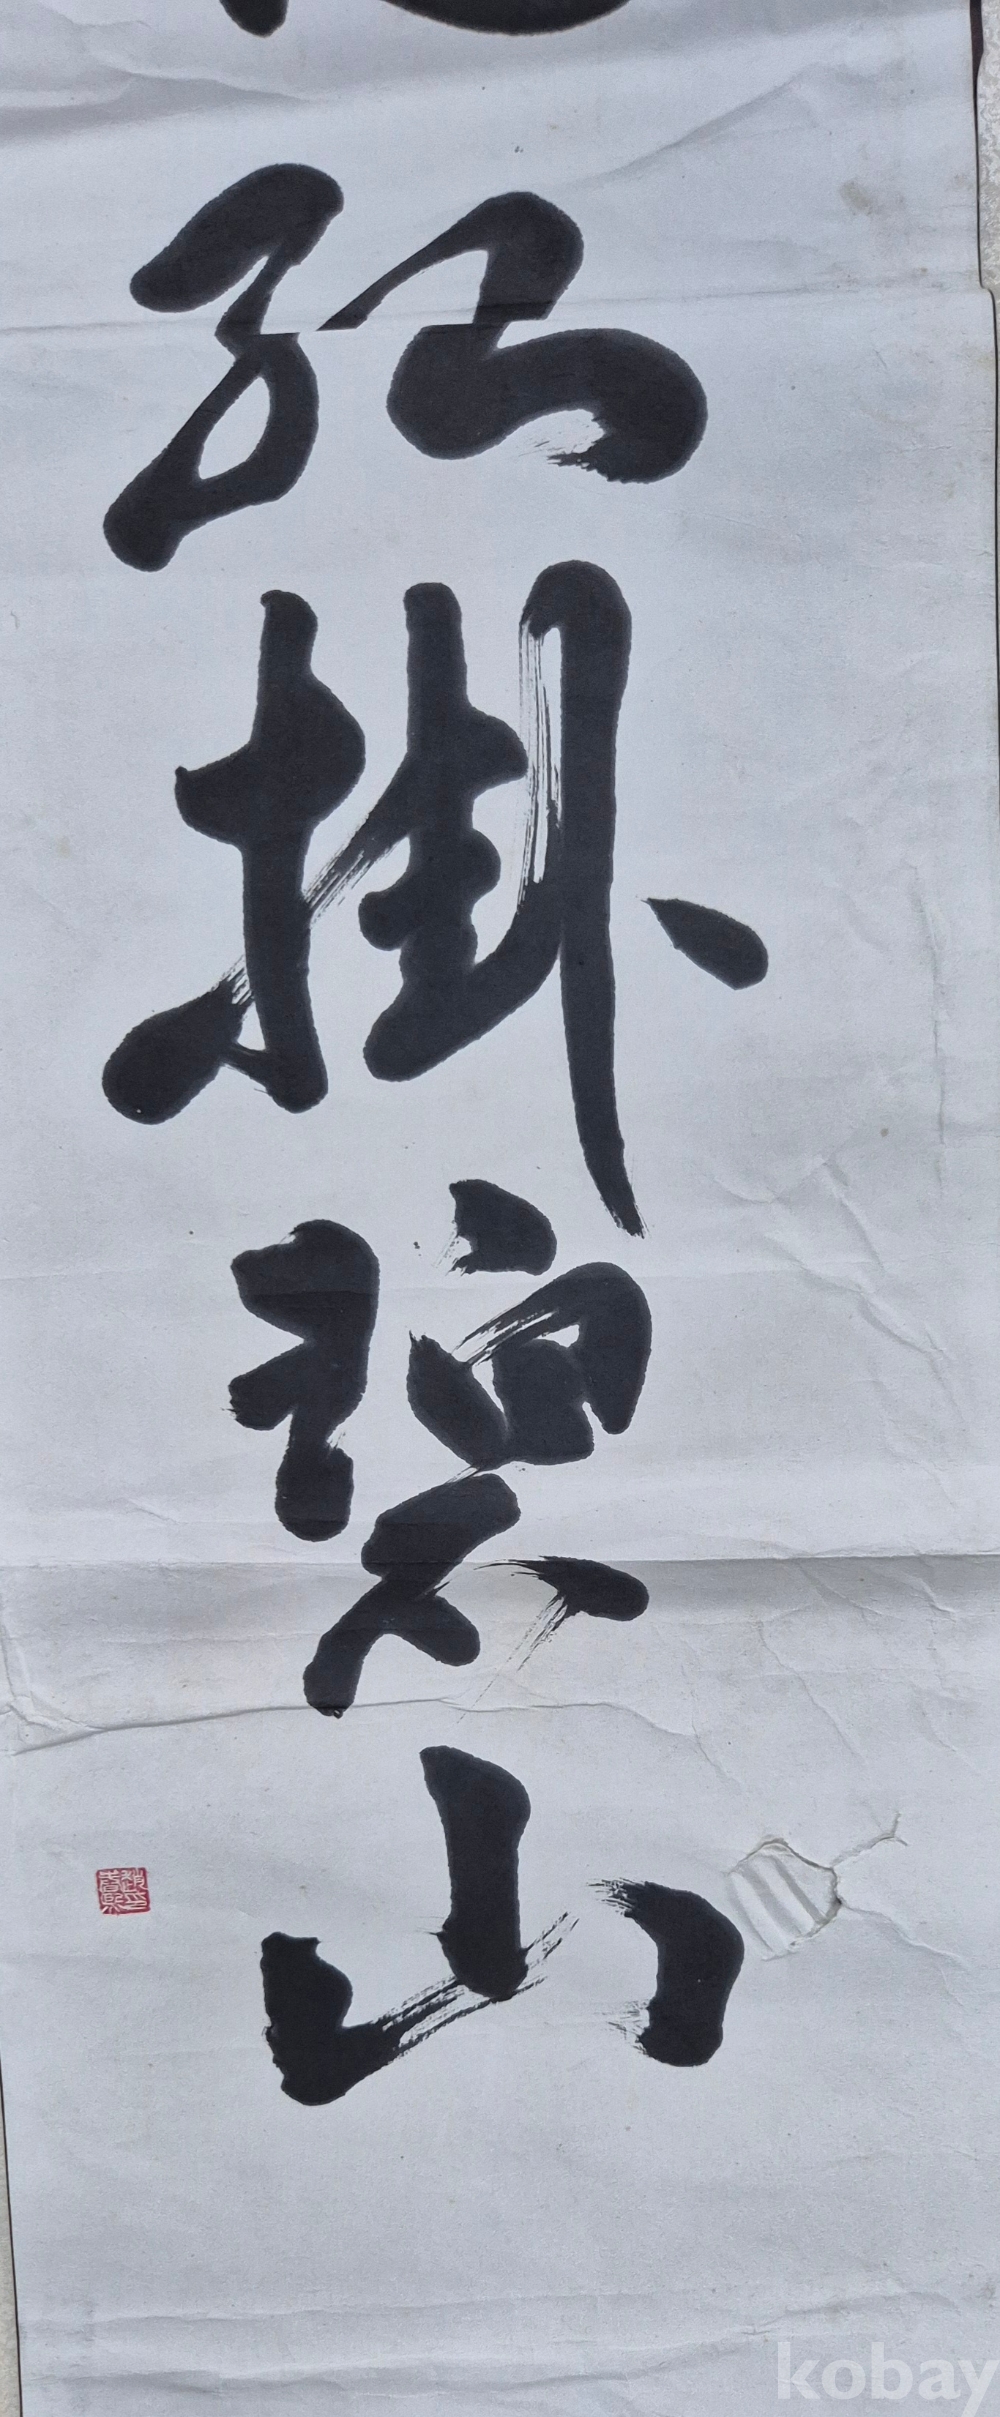 紅掛碧山
kobay